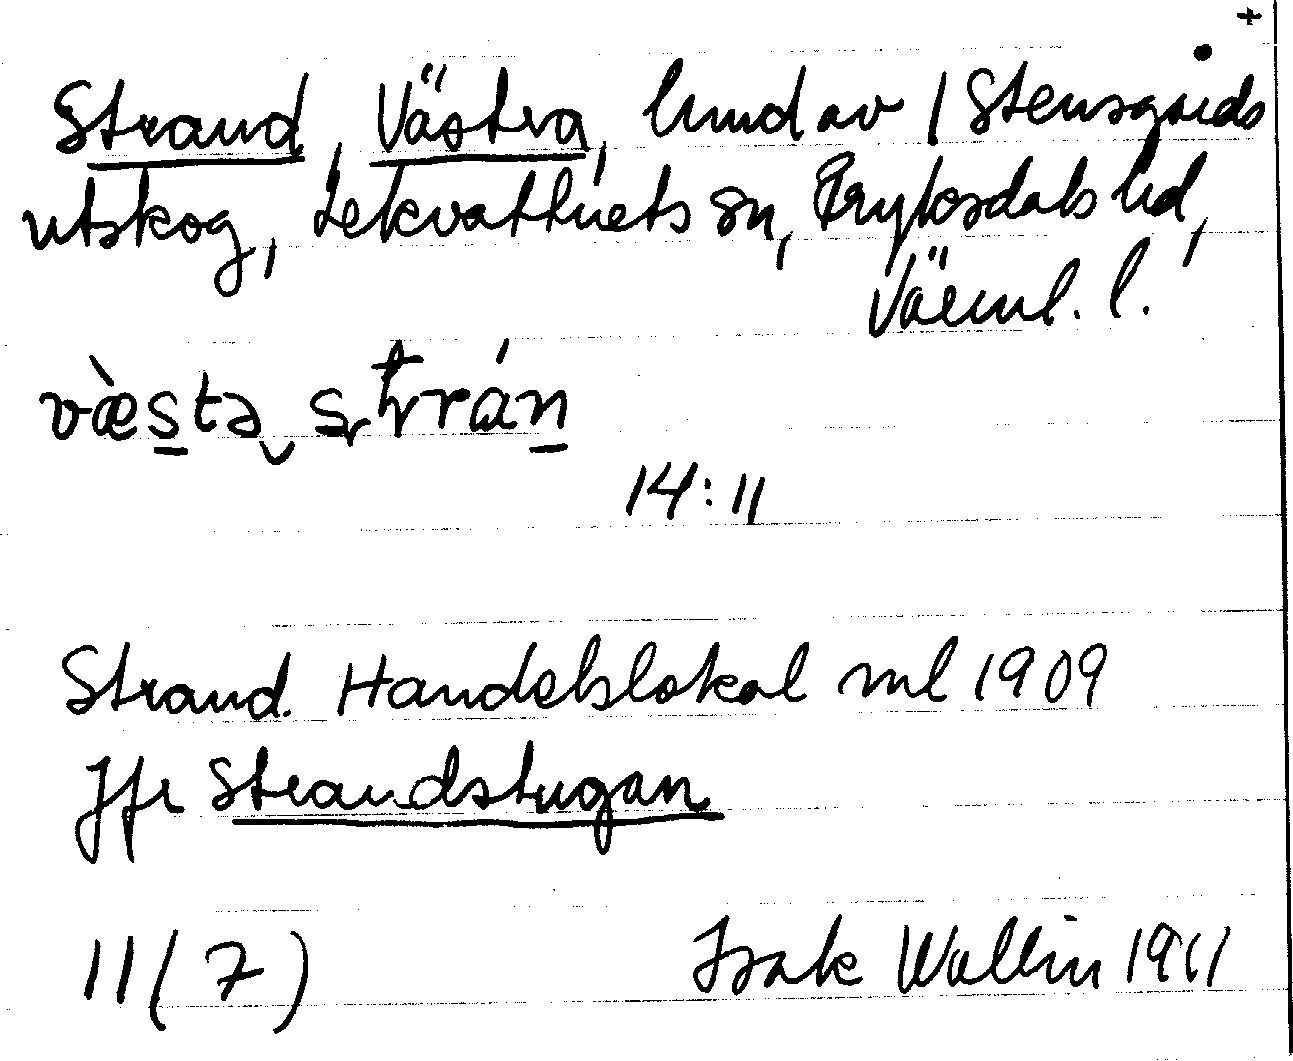 +
Strand, Västra, hmd av 1 Stensgårds
utskog, Lekvattnets sn, Fryksdals hd,
Värml. l.
væ̀s̲tə‿ştrán̲
14:11
Strand. Handelslokal ml 1909
Jfr Strandstugan
11(7) Isak Wallin 1911